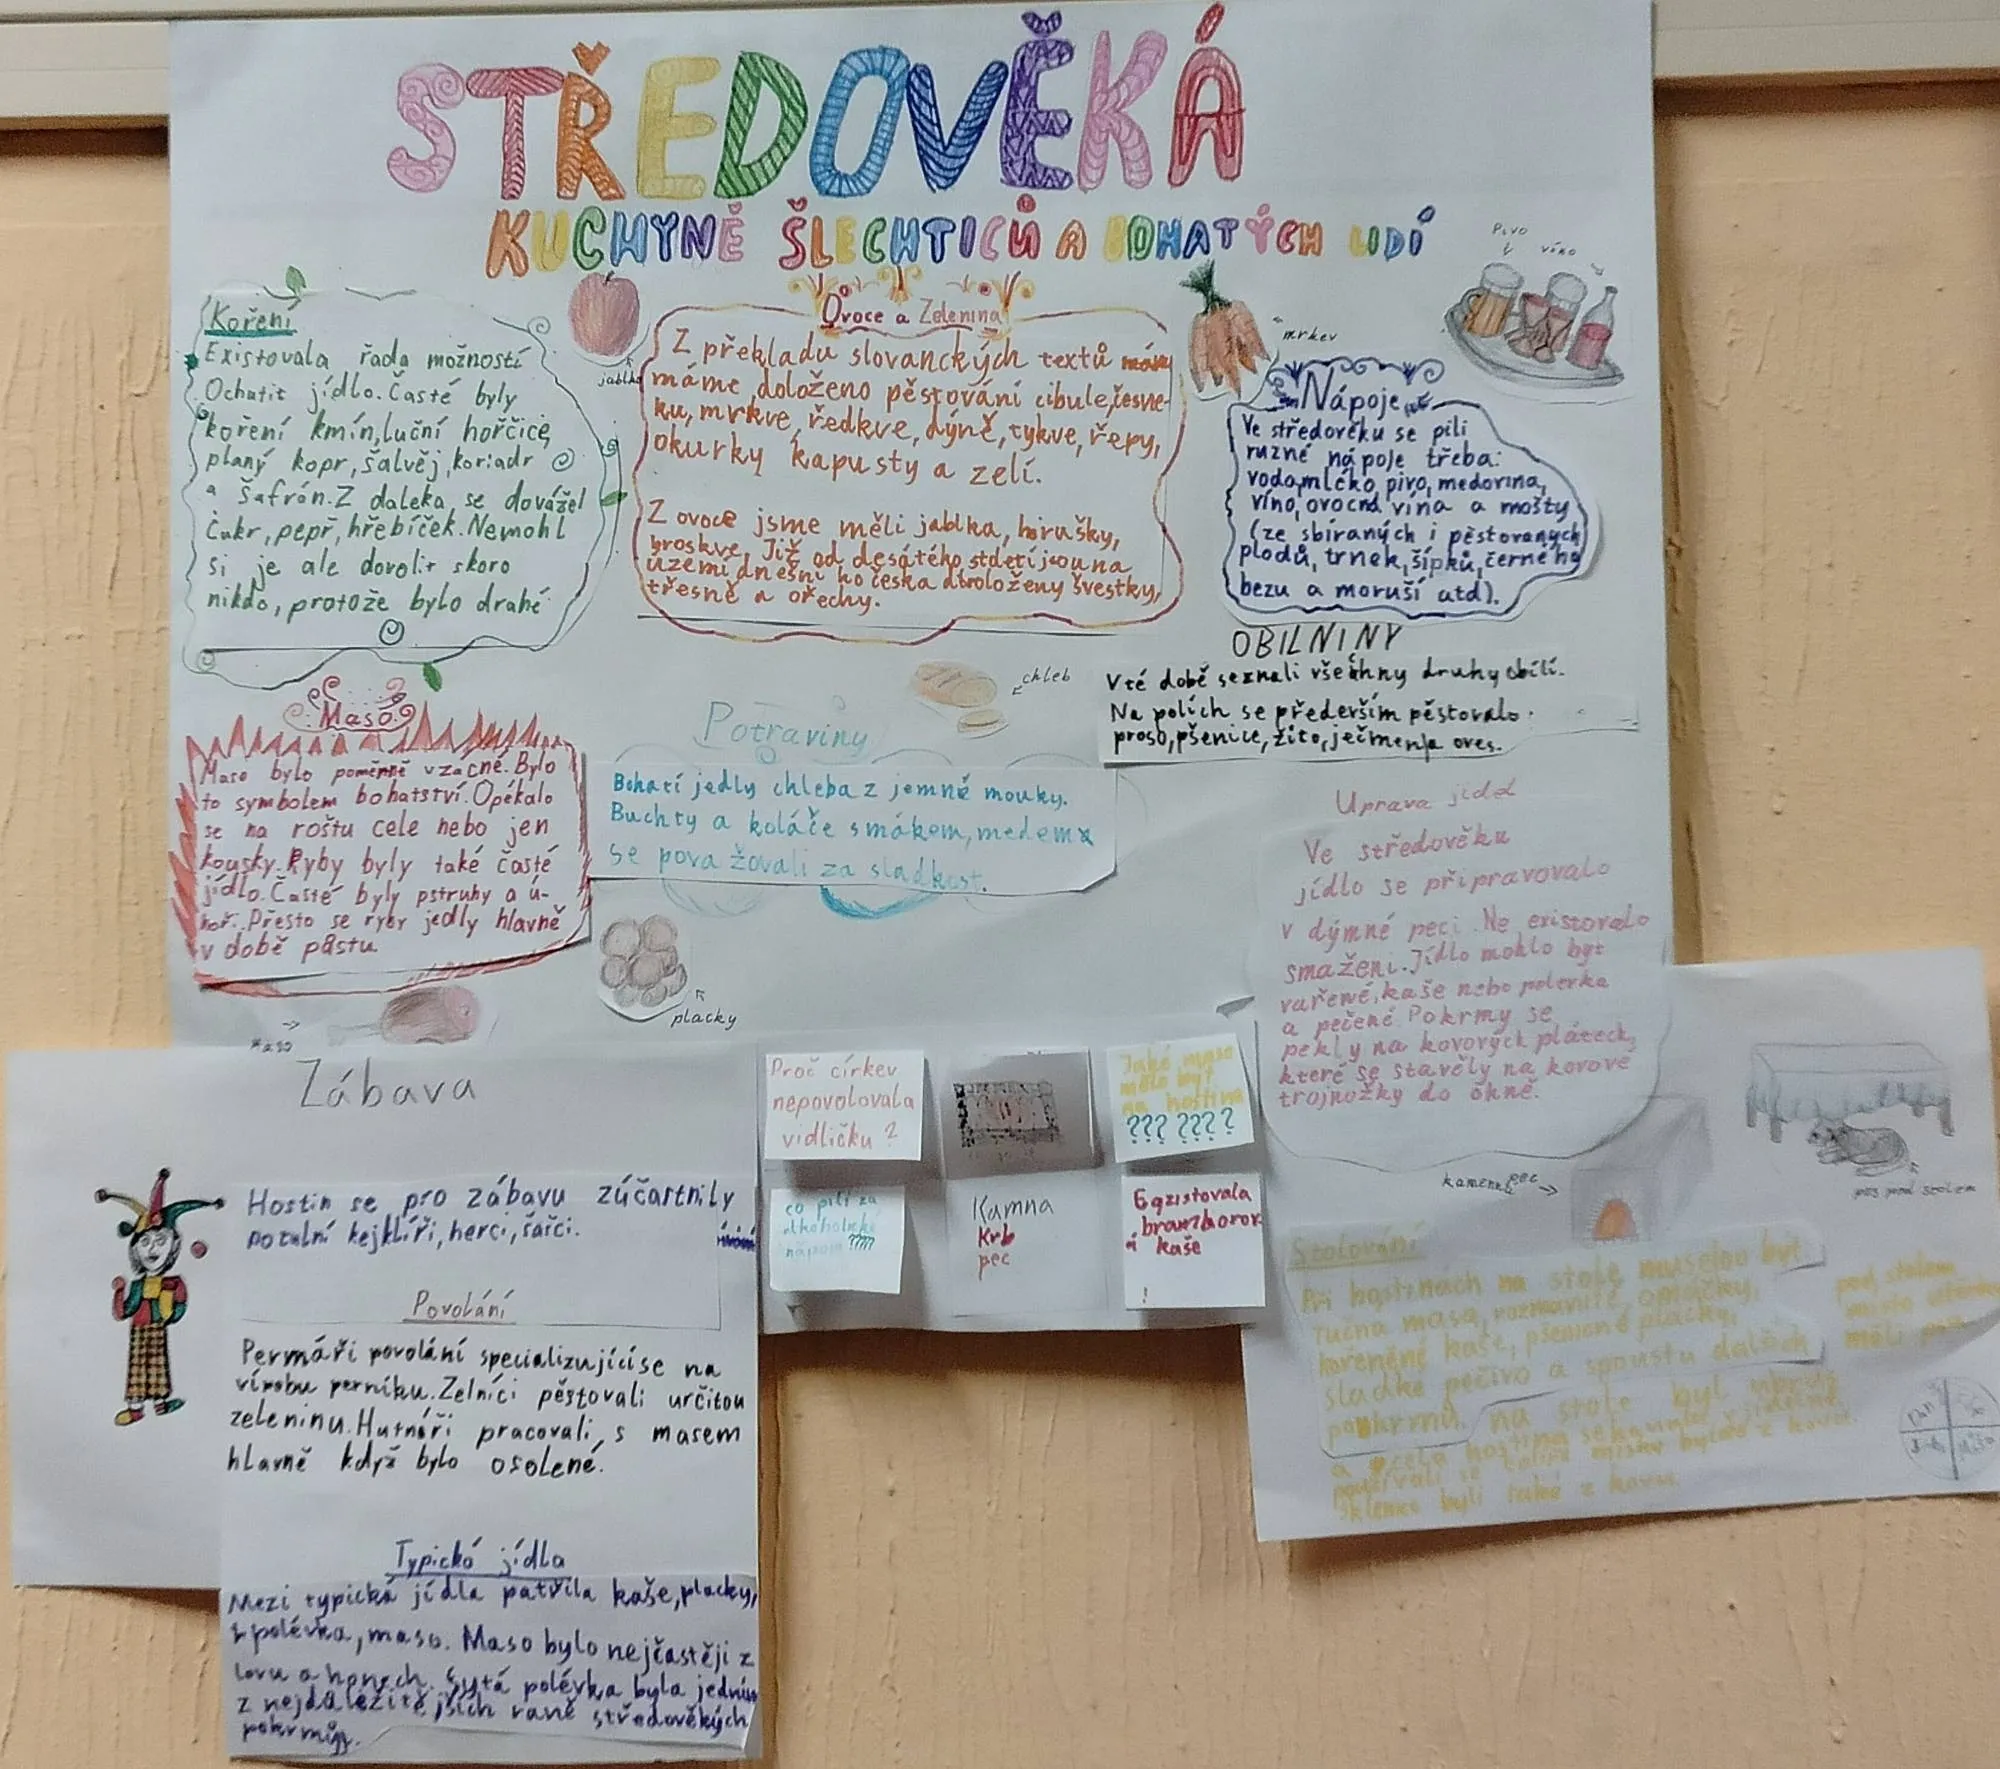 STŘEDOVĚKÁ
KUCHYNĚ ŠLECHTICŮ A BOHATÝCH LIDÍ
Koření
Existovala řada možností
Ochutit jídlo. Časté byly
koření kmín, luční hořčice,
planý kopr, šalvěj, koriadr
a šafrán. Z daleka se dovážel
cukr, pepř, hřebíček. Nemohl
si je ale dovolit skoro
nikdo, protože bylo drahé
jablko
Ovoce a Zelenina
Z překladu slovanckých textů
máme doloženo pěstování cibule, česne-
ku, mrkve, ředkve, dýně, tykve, řepy,
okurky kapusty a zelí.
Z ovoce jsme měli jablka, hrušky,
broskve. Již od desátého století jsou na
území dnešní ho česka doloženy švestky,
třesně a ořechy.
mrkev
Pivo
víno
Nápoje
Ve středověku se pili
ruzné nápoje třeba:
voda, mlčko pivo, medovina,
víno, ovocná vína a mošty
(ze sbíraných i pěstovaných
plodů, trnek, šípků, černé ho
bezu a moruší atd).
OBILNINY
V té době seznali všechny druhy obilí.
Na polích se předevšim pěstovalo
proso, pšenice, žito, ječmen a oves.
Maso
Maso bylo poměrně vzácné. Bylo
to symbolem bohatství. Opékalo
se na roštu cele nebo jen
kousky. Ryby byly také časté
jídlo. Časté byly pstruhy a ú-
hoř. Přesto se ryby jedly hlavně
v době půstu
maso
Potraviny
chleb
Bohatí jedly chleba z jemné mouky.
Buchty a koláče s mákem, medem
se pova žovali za sladkost.
placky
Uprava jídel
Ve středověku
jídlo se připravovalo
v dýmné peci. Ne existovalo
smaženi. Jídlo mohlo být
vařené, kaše nebo polevka
a pečené. Pokrmy se
pekly na kovových plátech,
které se stavěly na kovové
trojnožky do ohně.
kamenná pec
pes pod stolem
Zábava
Hostin se pro zábavu zúčastnily
potulní kejklíři, herci, šašci.
Povolání
Pernáři povolání specializujícíse na
výrobu perníku. Zelníci pěstovali určitou
zeleninu. Hutnéři pracovali s masem
hlavně když bylo osolené.
Typická jídla
Mezi typická jídla patřila kaše, placky,
polévka, maso. Maso bylo nejčastěji z
lovu a honech. Sytá polévka byla jedním
z nejdůležitě jších raně středověkých
pokrmů.
Proč církev
nepovolovala
vidličku?
Jaké maso
mělo být
na hostina
??? ????
co pilí za
alkoholické
nápoje ?????
Kamna
Krb
pec
Egzistovala
bramborov
á kaše
!
Stolování
Při hostinách na stole muselou být
tučna masa, rozmanité, omáčky,
kořeněné kaše, pšenoné placky,
sladké pečivo a spoustu dalšich
pokrmů. na stole byl ubrus
sklenice byli také z kovu.
pod stolem
měli psa